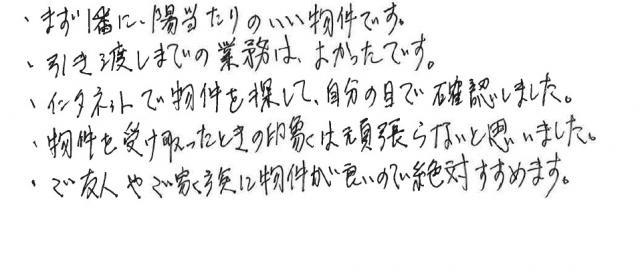 ・まず1番に、陽当たりのいい物件です。
・引き渡しまでの業務は、よかったです。
・インタネットで物件を探して、自分の目で確認しました。
・物件を受け取ったときの印象は頑張らないと思いました。
・ご友人やご家族に物件が良いので絶対すすめます。